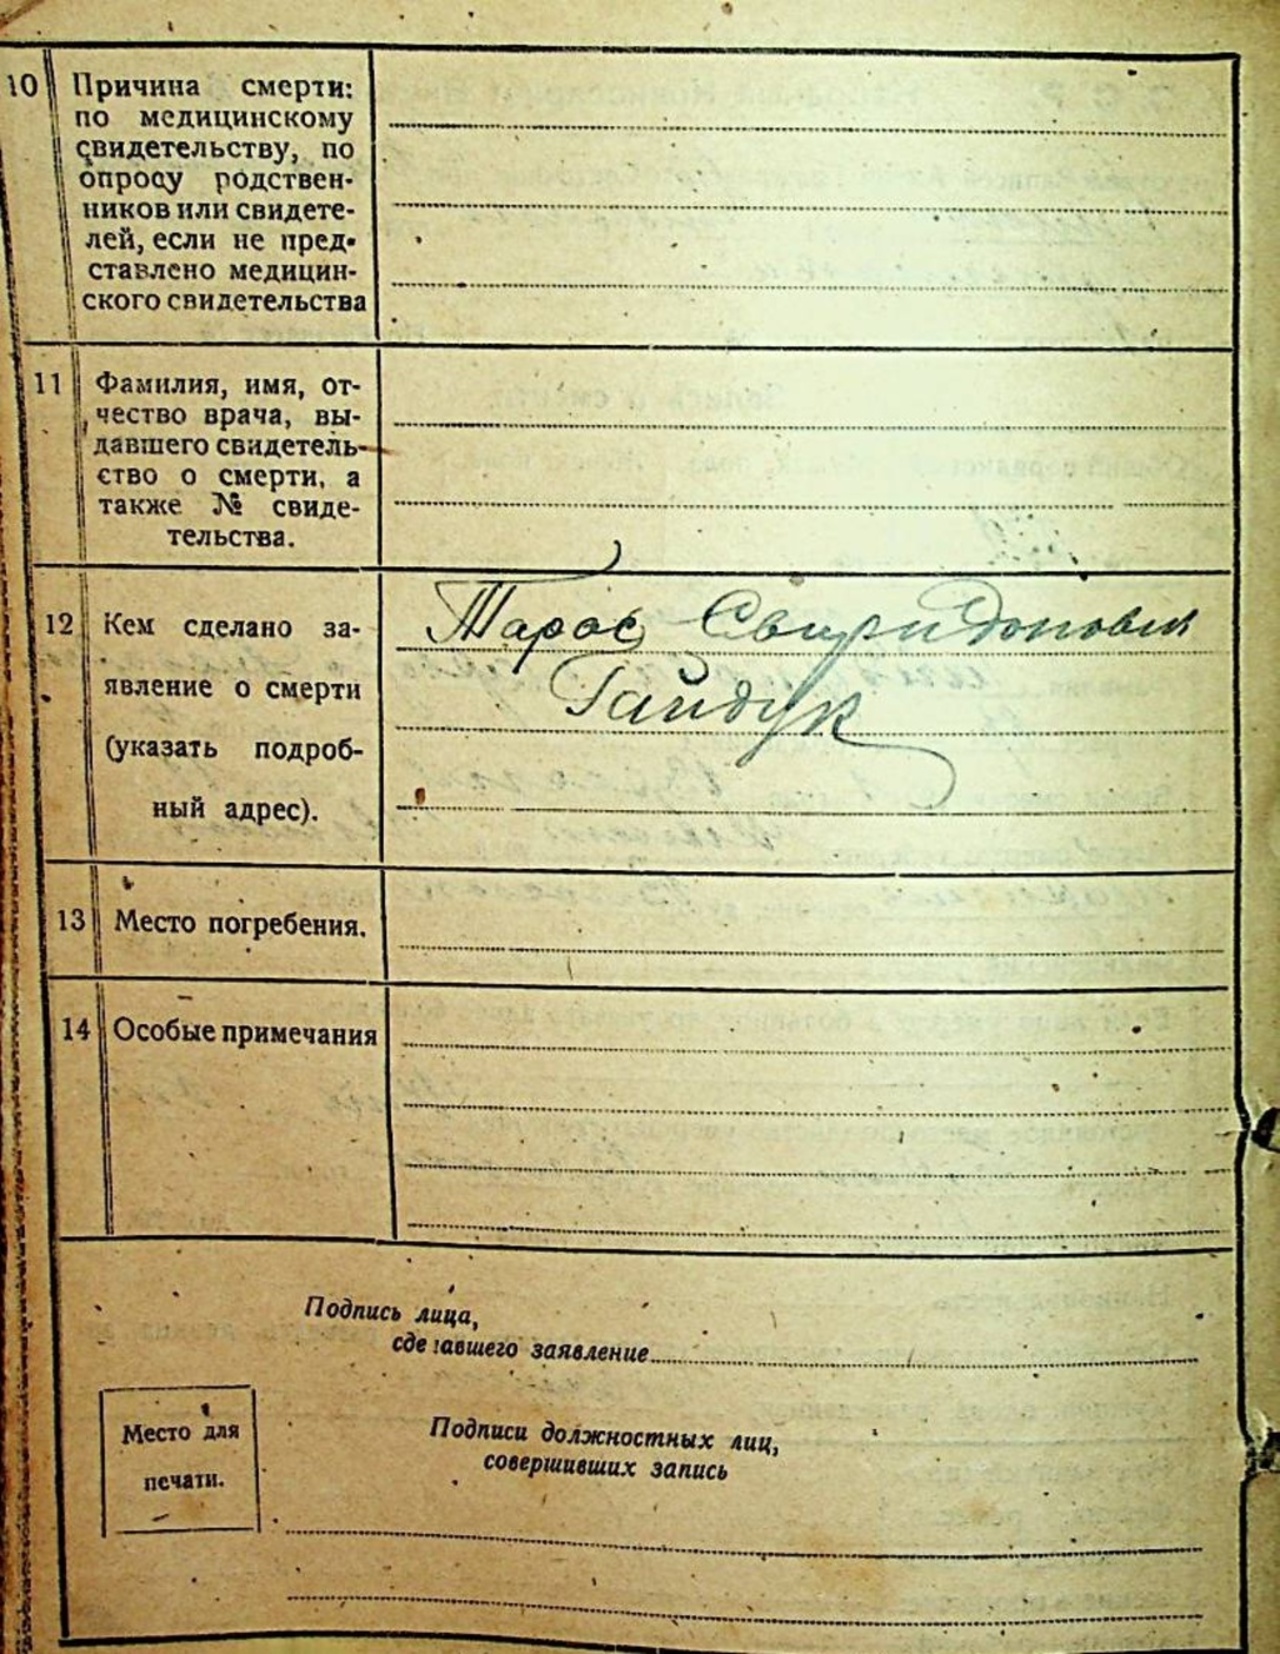 10 Причина смерти:
по медицинскому
свидетельству, по
опросу родствен-
ников или свидете-
лей, если не пред-
ставлено медицин-
ского свидетельства
11 Фамилия, имя, от-
чество врача, вы-
давшего свидетель-
ство о смерти, а
также № свиде-
тельства.
12 Кем сделано за-
явление о смерти
(указать подроб-
ный адрес).
Тарас Свиридонович
Гайдук
13 Место погребения.
14 Особые примечания
Подпись лица,
сделавшего заявление
Место для
печати.
Подписи должностных лиц,
совершивших запись